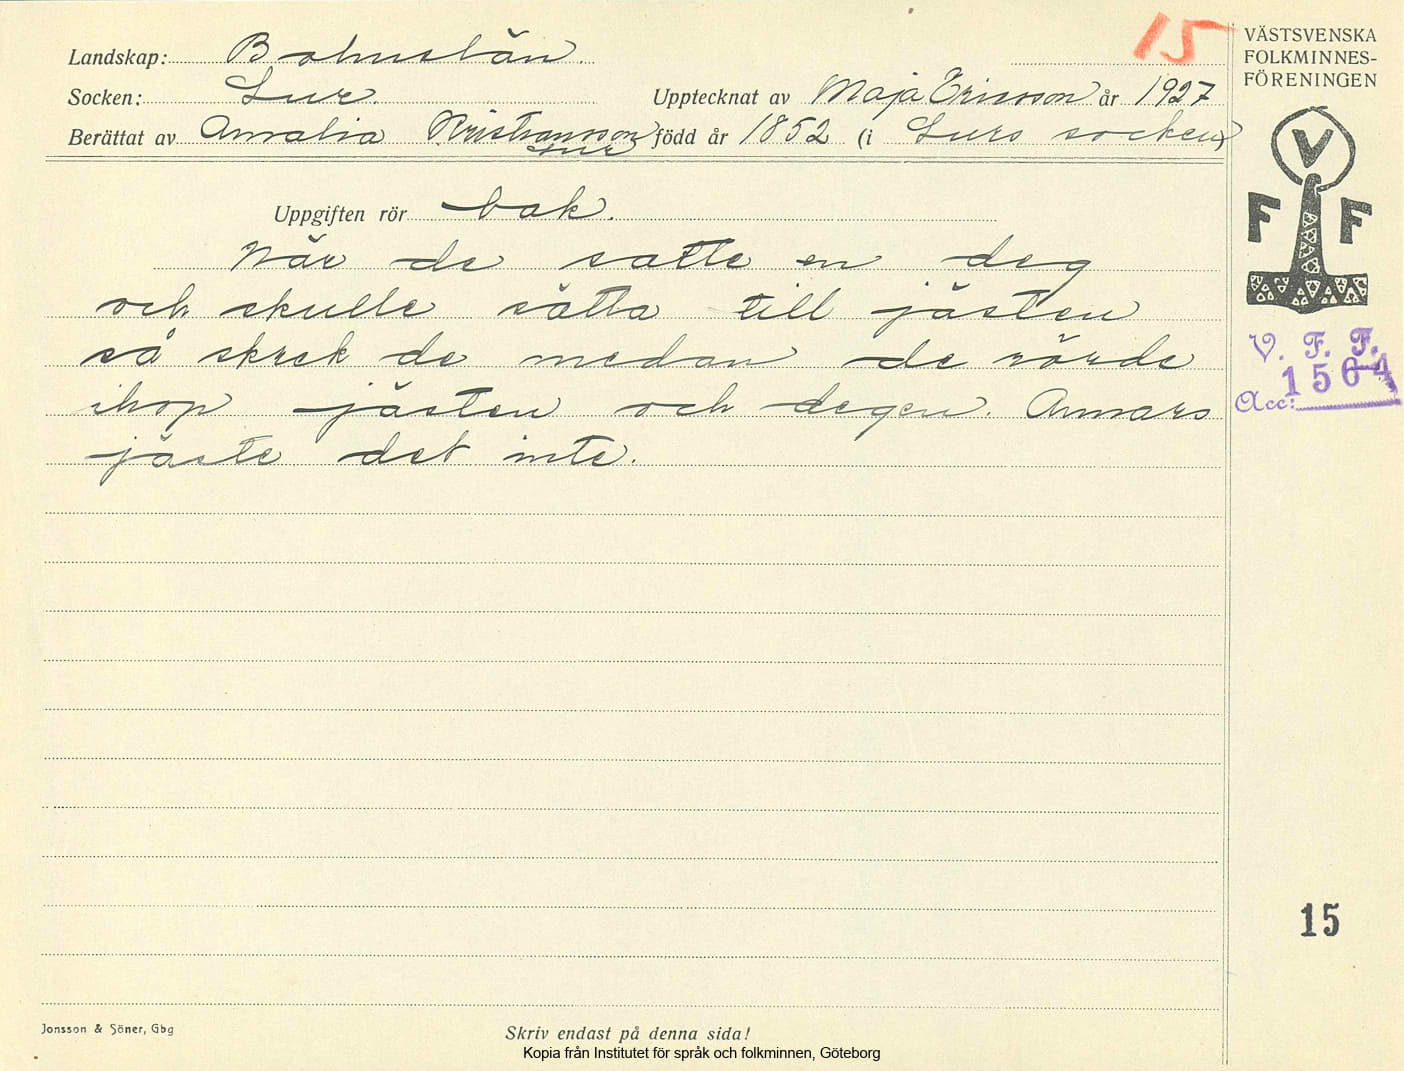 15
VÄSTSVENSKA
FOLKMINNES-
FÖRENINGEN
Landskap: Bohuslän.
Socken: Lur. Upptecknat av Maja Ericsson år 1927
Berättat av Amalia Kristiansson född år 1852 (i Lurs socken)
Lur
V
F F
Uppgiften rör bak.
När de satte en deg
och skulle sätta till jästen
så skrek de medan de rörde
ihop jästen och degen. Annars
jäste det inte.
V. F. F.
Acc: 1564
15
Jonsson & Söner, Gbg
Skriv endast på denna sida!
Kopia från Institutet för språk och folkminnen, Göteborg